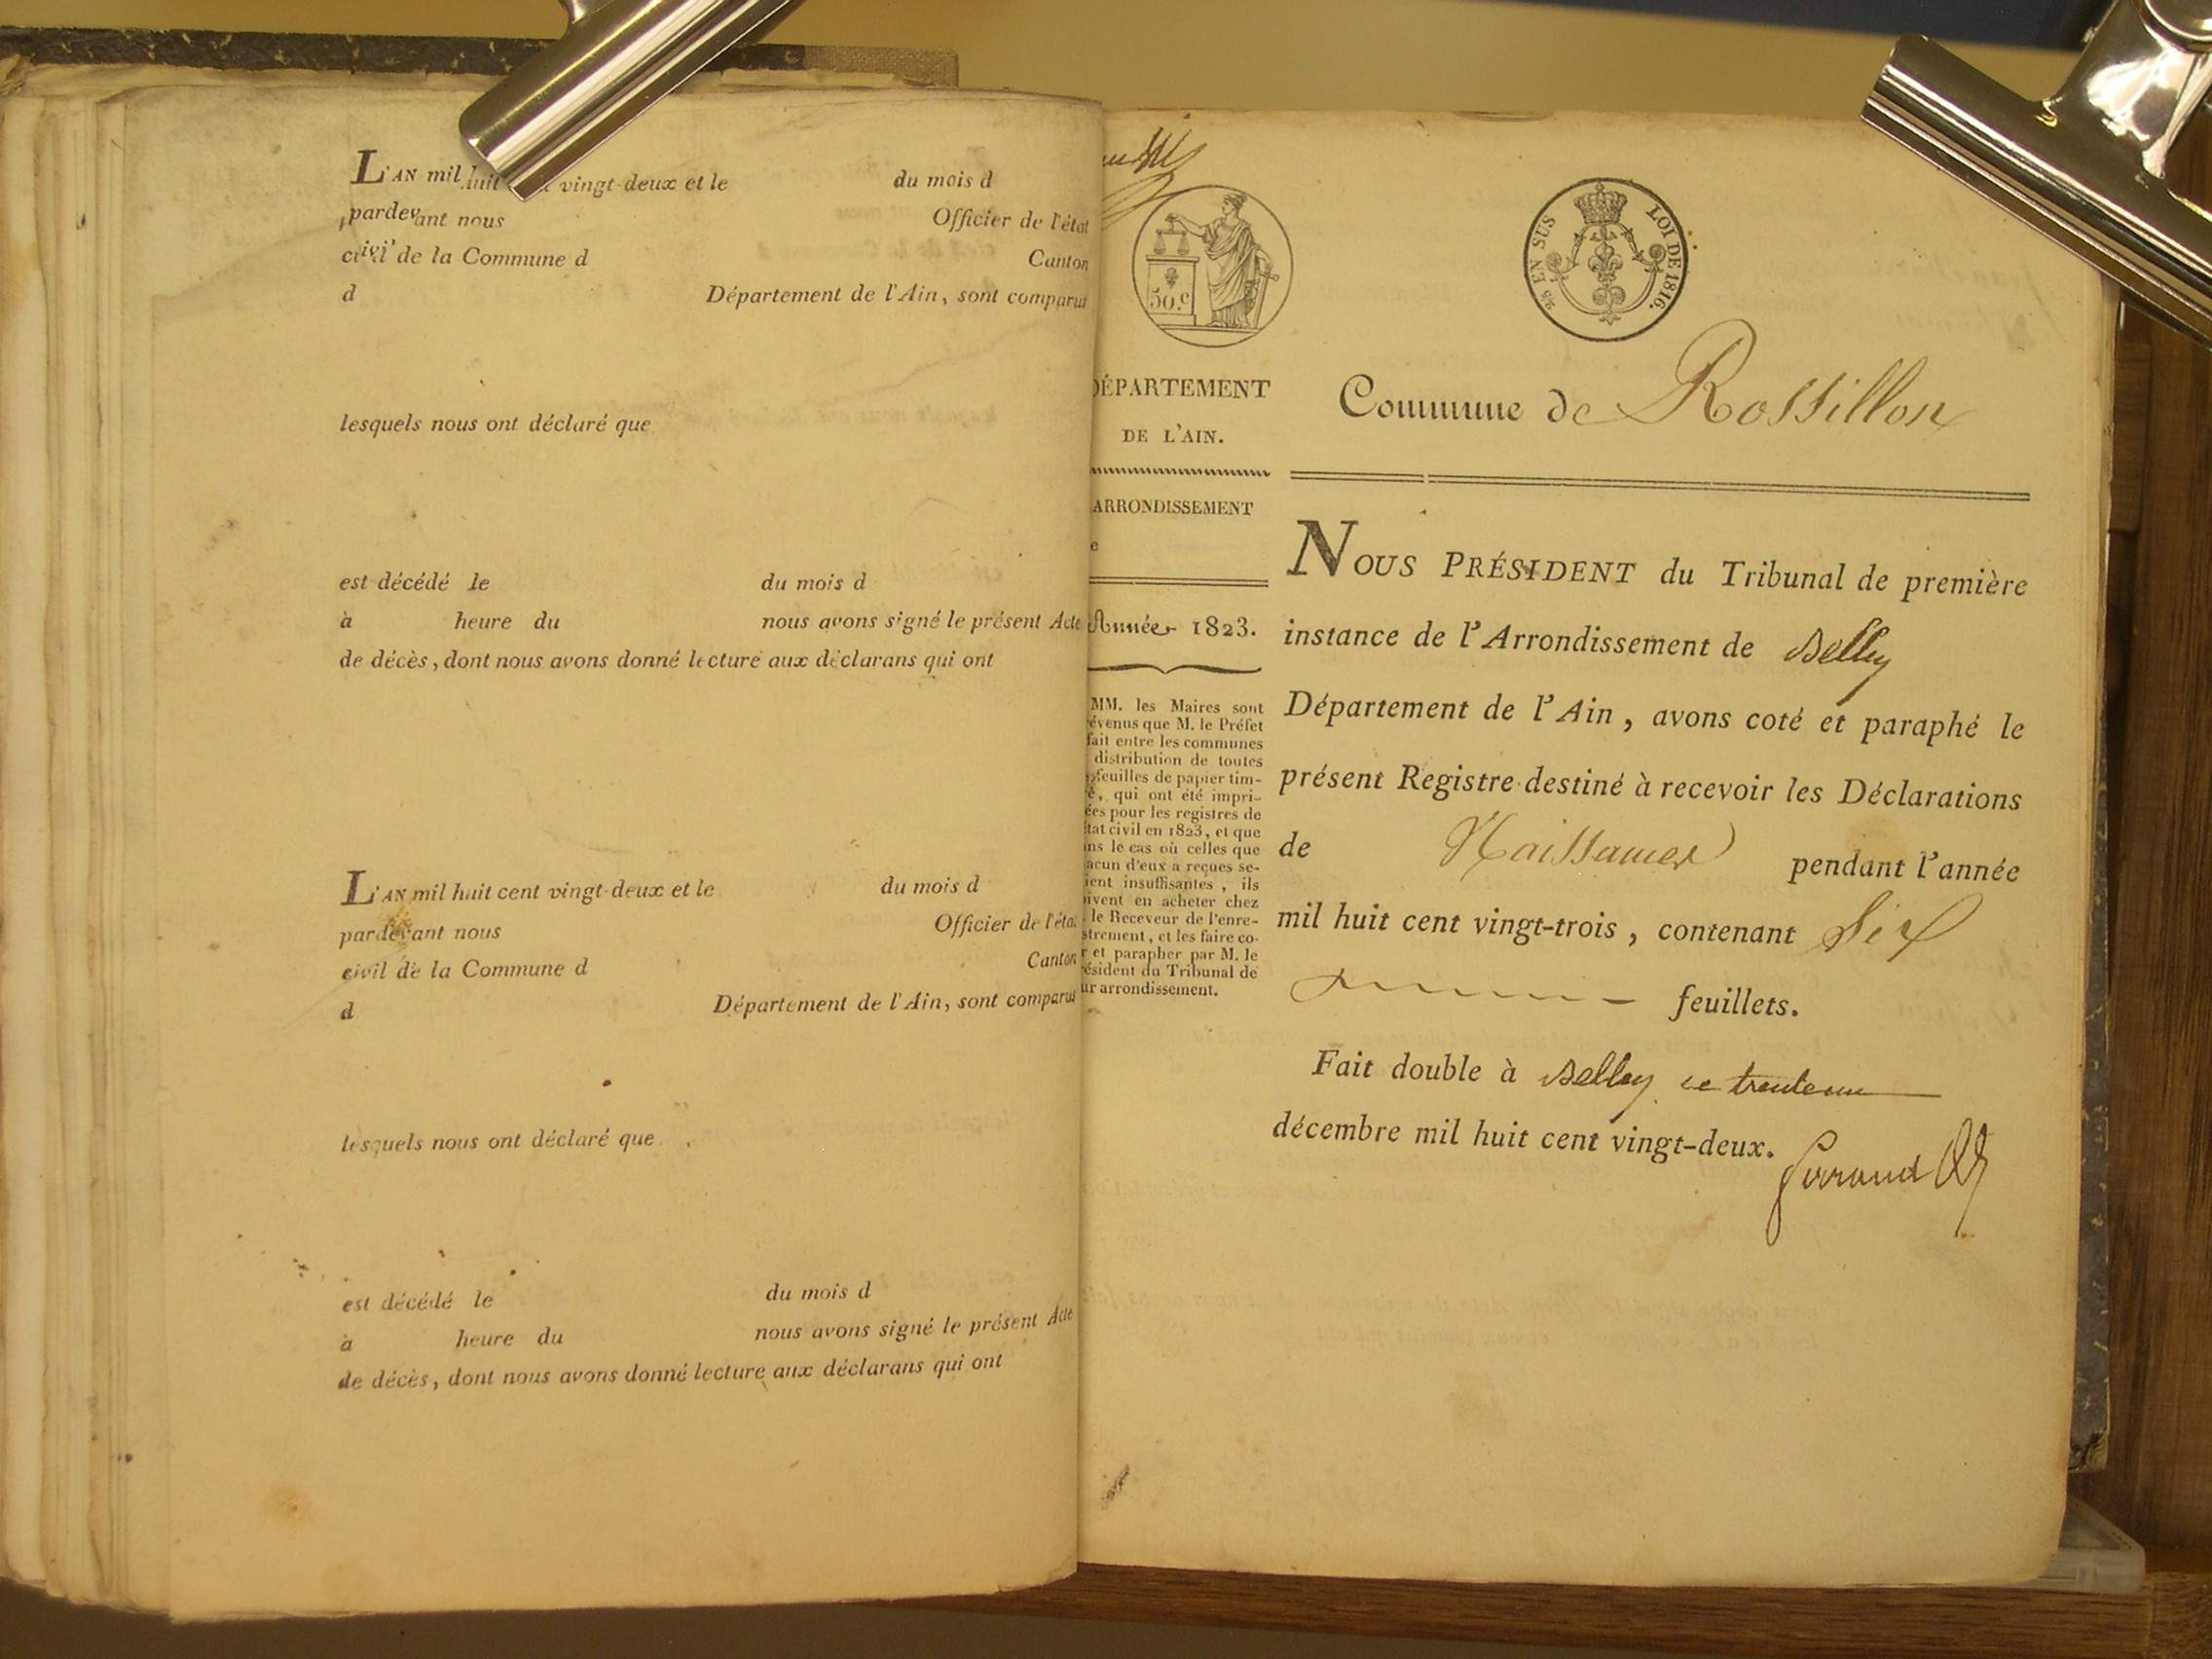 L'AN mil huit vingt-deux et le du mois d
pardevant nous Officier de l'état
civil de la Commune d Canton
d Département de l'Ain, sont comparut
lesquels nous ont déclaré que
est décédé le du mois d
à heure du nous avons signé le présent Acte
de décès, dont nous avons donné lecture aux déclarans qui ont
L'AN mil huit cent vingt-deux et le du mois d
pardevant nous Officier de l'état
civil de la Commune d Canton
d Département de l'Ain, sont comparus
lesquels nous ont déclaré que
est décédé le du mois d
à heure du nous avons signé le présent Acte
de décès, dont nous avons donné lecture aux déclarans qui ont
50.c
EN SUS LOI DE 1816.
DÉPARTEMENT
DE L'AIN.
ARRONDISSEMENT
e
Année 1823.
MM. les Maires sont
évenus que M. le Préfet
fait entre les communes
distribution de toutes
feuilles de papier tim-
é, qui ont été impri-
ées pour les registres de
état civil en 1823, et que
ns le cas où celles que
acun d'eux a reçues se-
ient insuffisantes, ils
ivent en acheter chez
le Receveur de l'enre-
strement, et les faire co-
r et parapher par M. le
ésident du Tribunal de
ur arrondissement.
Commune de Rossillon
NOUS PRÉSIDENT du Tribunal de première
instance de l'Arrondissement de Belley
Département de l'Ain, avons coté et paraphé le
présent Registre destiné à recevoir les Déclarations
de Naissances pendant l'année
mil huit cent vingt-trois, contenant Six
feuillets.
Fait double à Belley ce trente un
décembre mil huit cent vingt-deux.